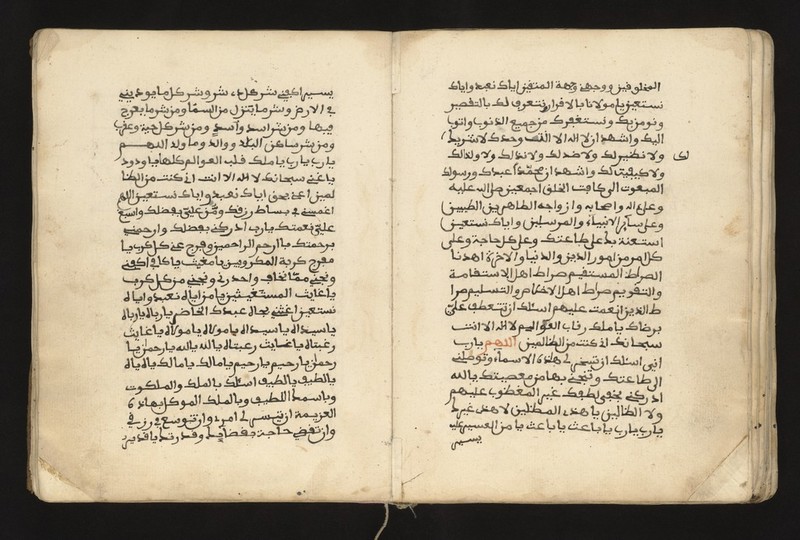 المخلوقين ووجهي وجهة المتقين اياك نعبد واياك
نستعين يا مولانا بالاقرار ونتعرف لك بالتقصير
ونومن بك ونستغفرك من جميع الذنوب واتوب
اليك واشهد ان لا اله الا الله وحدك لا شريك
لك
ولا نظير لك ولا ضد لك ولا ند لك ولا ولد لك
ولا كيفية لك واشهد ان محمدا عبدك ورسولك
المبعوث الى كافة الخلق اجمعين صلى الله عليه
وعلى اله واصحابه وازواجه الطاهرين الطيبين
وعلى سائر الانبياء والمرسلين واياك نستعين
استعنة بك على طاعتك وعلى كل حاجة وعلى
كل امر من امور الدين والدنيا والاخرة اهدنا
الصراط المستقيم صراط اهل الاستقامة
والتقويم صراط اهل الاخلاص والتسليم صرا
ط الذين انعمت عليهم اسئلك ان تتعطف علي
برضاك يا ملك رقاب العوالم لا اله الا انت
سبحانك اني كنت من الظالمين اللهم يارب
اني اسئلك ان تسخر لي هذه الاسماء وتوصلني
الى طاعتك وتنجني بها من معصيتك يا الله
ادركني بخفي لطفك غير المغضوب عليهم
ولا الضالين يا هدي المضلين لا هدي غيرك
يارب يارب يا باعث يا باعث يا من العسير عليه
يسير
يسير اكفني شر كل ذي شر وشر كل ما يوذيني
في الارض وشر ما ينزل من السماء ومن شر ما يعرج
فيها ومن شر اسد واسد ومن شر كل حية وعقرب
ومن شر ساكن البلد ووالد وما ولد اللهم
يارب يارب يا ملك قلب العوالم كلها يا ودود
يا غني سبحانك لا اله الا انت اني كنت من الظا
لمين اغثني بحق اياك نعبد واياك نستعين اللهم
اغمسني في بساط رزقك ومن علي بفضلك واسبغ
علي نعمتك يارب ادركني بفضلك وارحمني
برحمتك يا ارحم الراحمين وفرج عني كل كرب يا
مفرج كربة المكروبين يا مغيث يا كافي اكفني
ونجني مما نخاف واحذر ني ونجني من كل كرب
يا غايث المستغيثين يا من اياك نعبد واياك
نستعين اغثني بحال عبدك الخاضع يارباه يارباه
يا سيداه يا سيداه يا مولاه يا مولاه يا غايث
رغبتاه يا غايث رغبتاه يا الله يا الله يا رحمن يا
رحمن يا رحيم يا رحيم يا مالك يا مالك ياه ياه
يا لطيف يا لطيف اسئلك بالملك والملكوت
وباسمك اللطيف وبالملك الموكل بهاذه
العزيمة ان تيسر لي امري وان توسع في رزقي
وان تقضي حاجتي بفضلك وقدرتك يا قدير